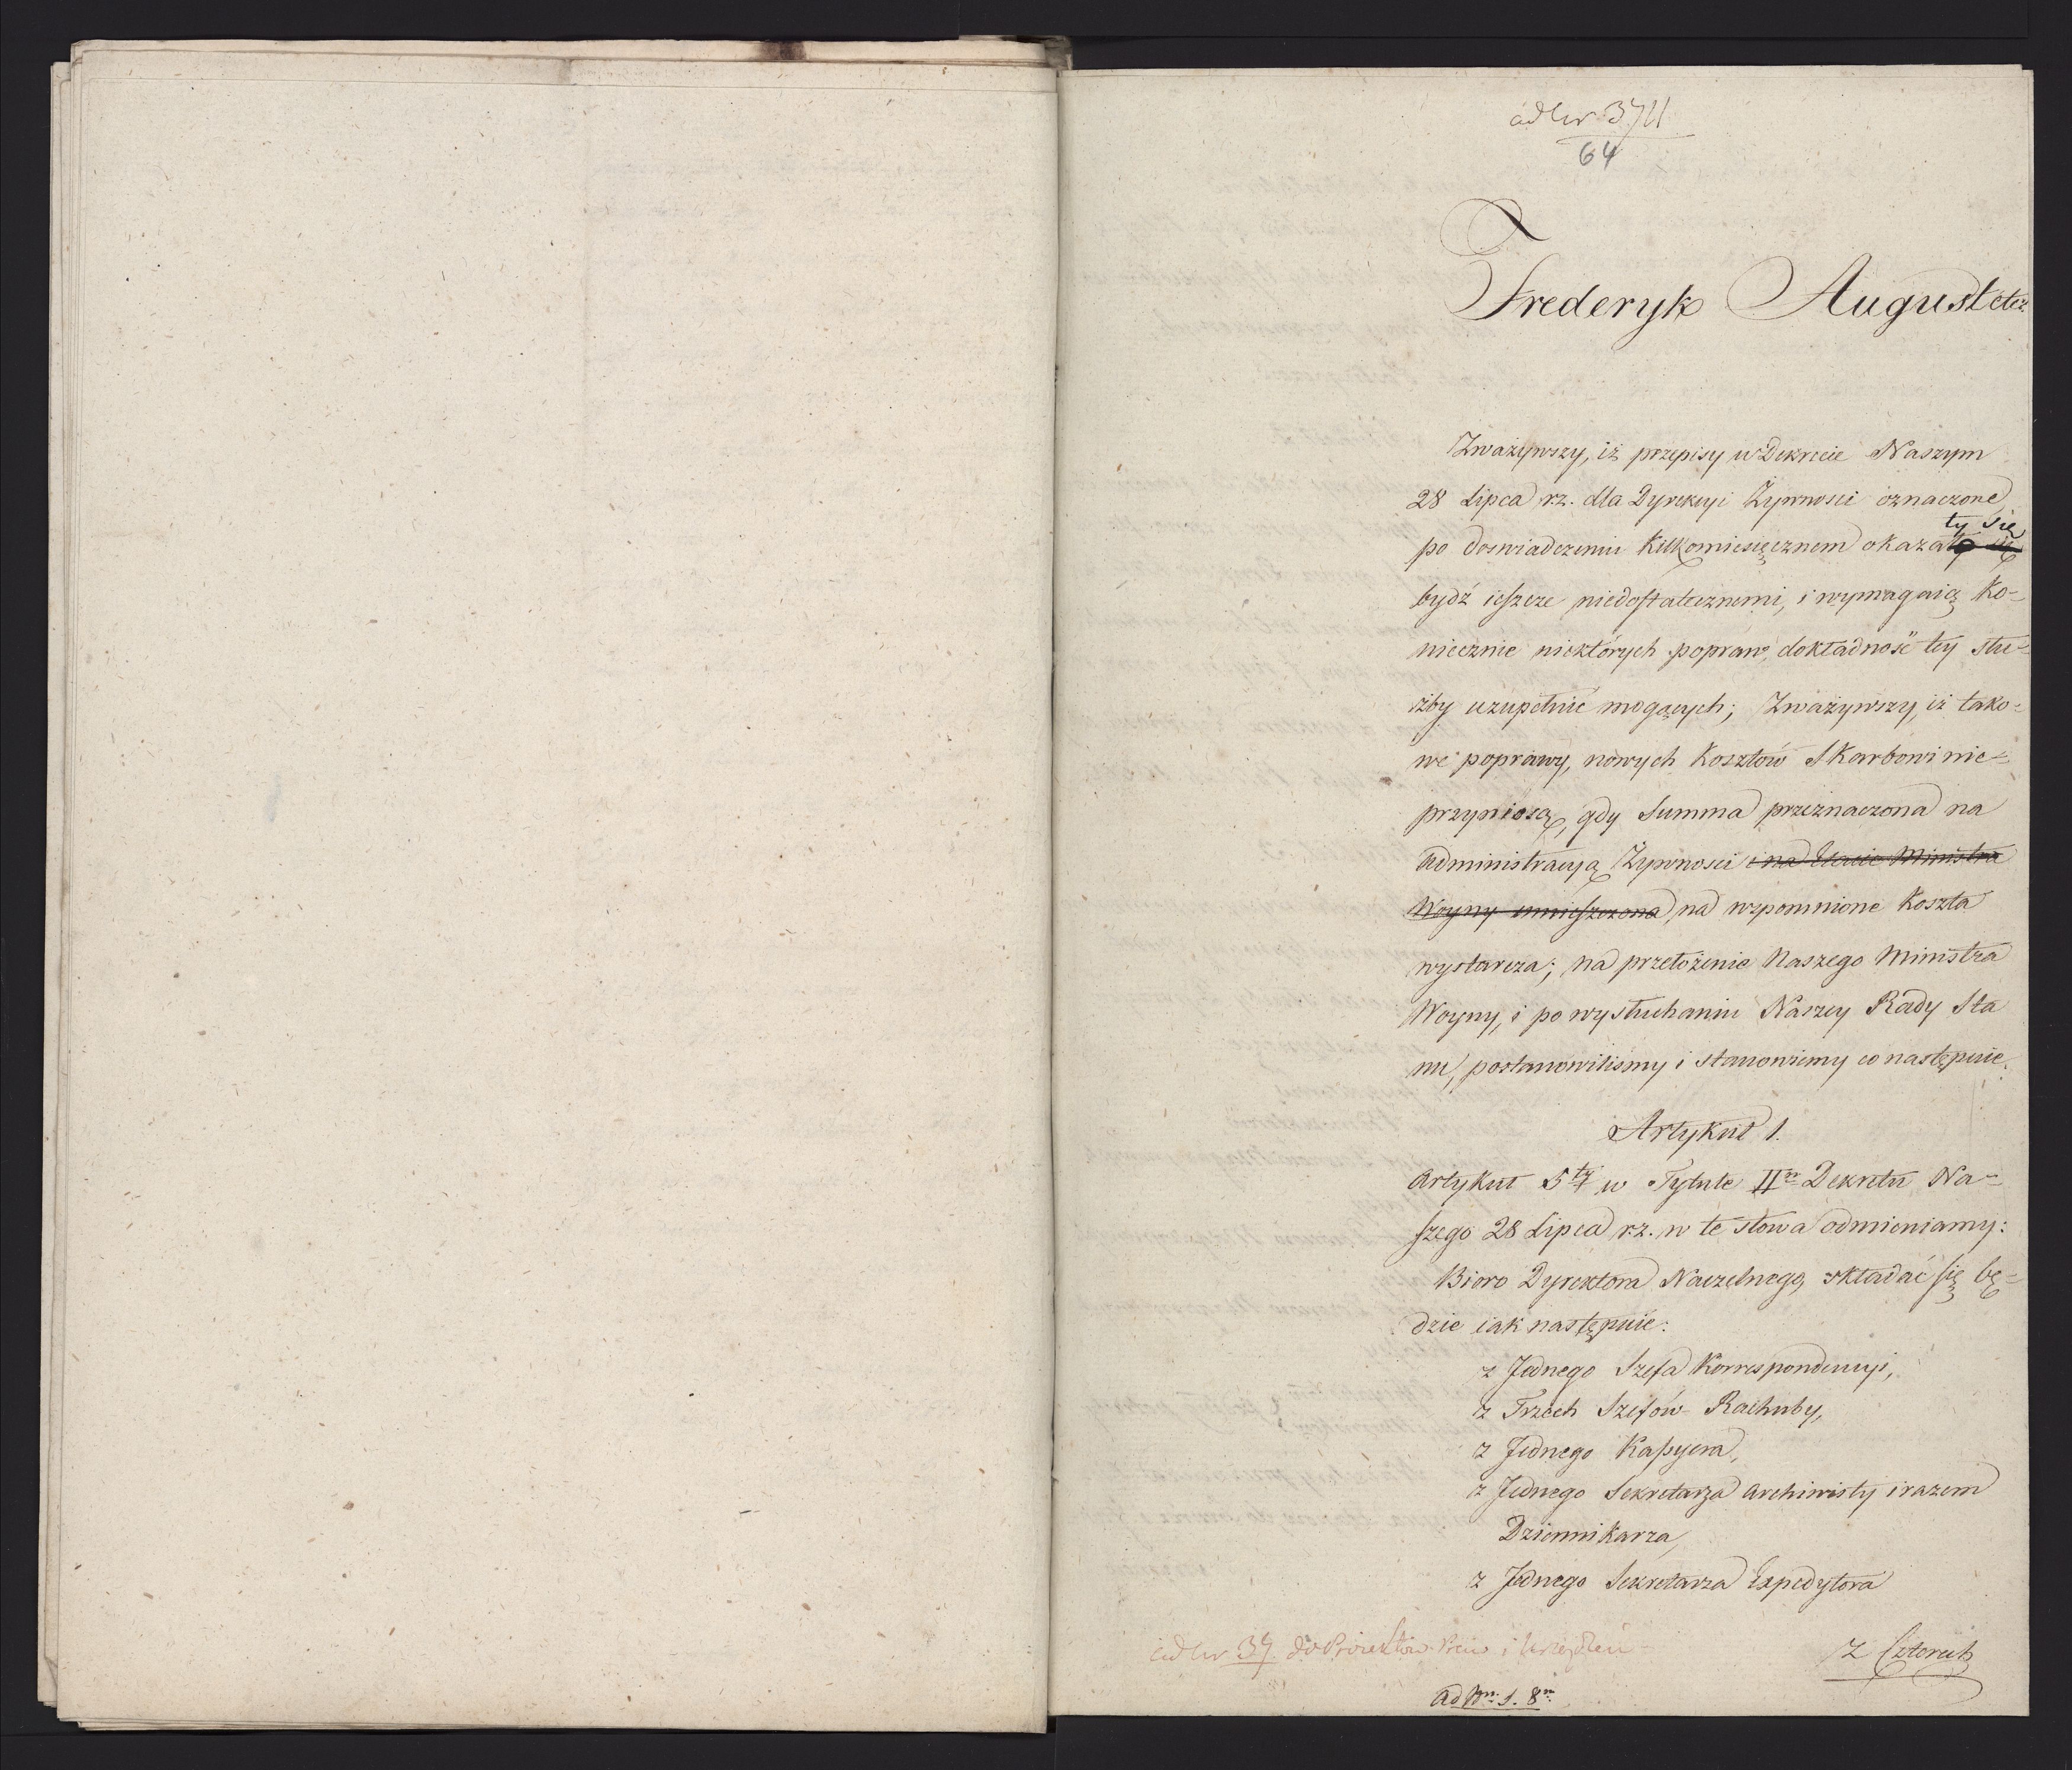 ad Nr 3711
64
Frederyk August etc.
Zważywszy, iż przepisy w Dekrecie Naszym
28 Lipca r.z. dla Dyrekcyi Żywnosci oznaczone
ty się
po doswiadczeniu kilkomiesięcznem okazały się
bydź ieszcze niedostatecznemi, i wymagaią ko-
niecznie niektórych popraw, dokładność tey słu-
żby uzupełnić mogących; Zważywszy, iż tako-
we poprawy, nowych kosztów Skarbowi nie-
przyniosą, gdy Summa przeznaczona na
Administracyą Żywnosci i na Etacie Ministra
Woyny umieszczona na wspomnione koszta
wystarcza; na przełożenie Naszego Ministra
Woyny, i po wysłuchaniu Naszey Rady Sta
nu, postanowilismy i stanowiemy co następuie.
Artykuł 1.
Artykuł 5ty w Tytule IIm Dekretu Na-
szego 28 Lipca r.z. w te słowa odmieniamy:
Bioro Dyrektora Naczelnego, składać się bę-
dzie iak następuie:
z Jednego Szefa Korrespondencyi,
z Trzech Szefów Rachuby,
z Jednego Kassyera,
z Jednego Sekretarza Archiwisty i razem
Dziennikarza,
z Jednego Sekretarza Expedytora
z Czterech
ad Nr 37. do Proiektow Praw i Urządzeń
ad Nr 1. 8m